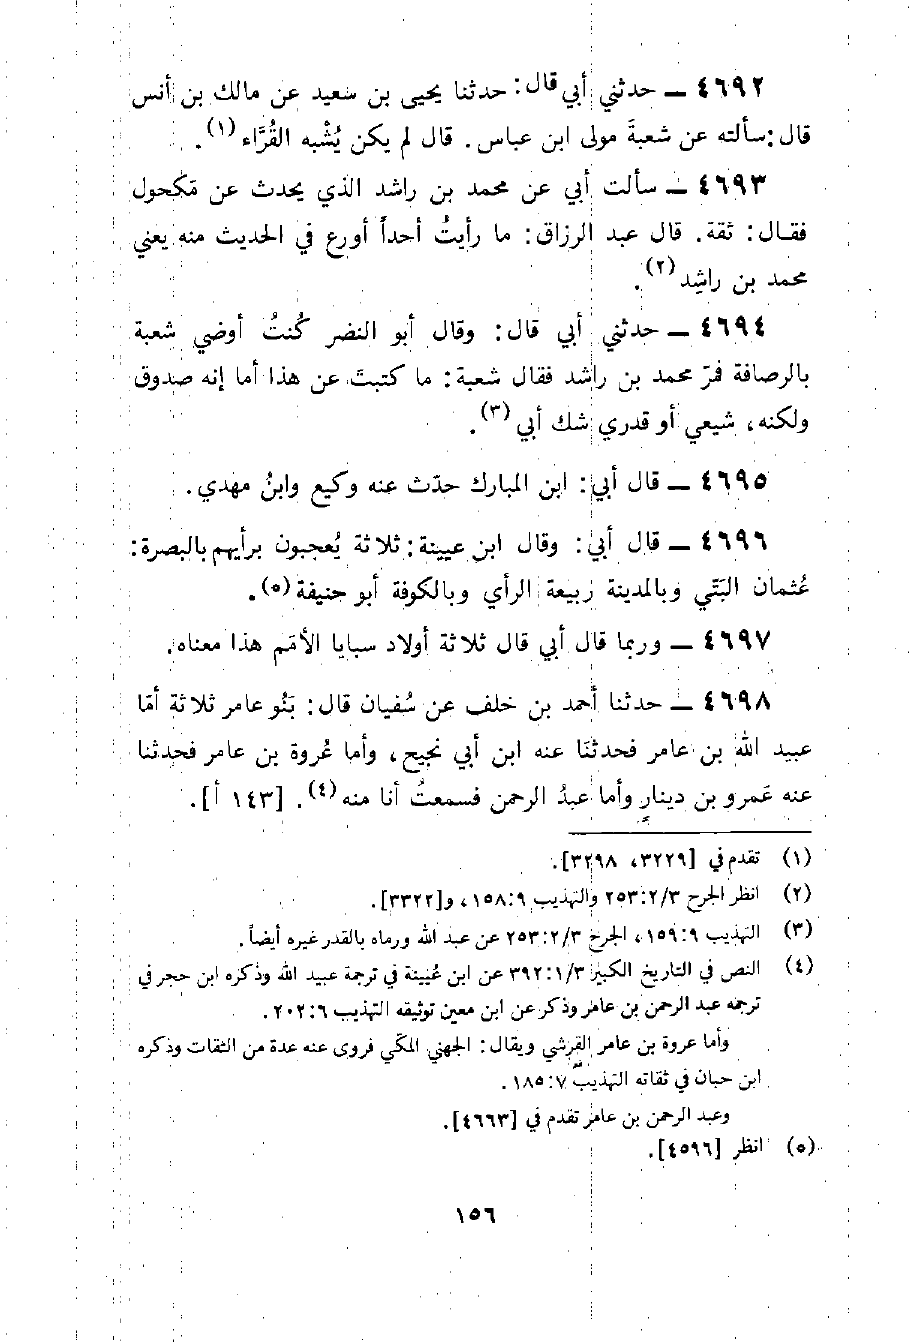 ٤٦٩٢ ــ حدثني أبي قال: حدثنا يحيى بن سعيد عن مالك بن أنس
قال: سألته عن شعبةَ مولى ابن عباس. قال لم يكن يُشْبه القُرَّاء (١).
٤٦٩٣ ــ سألت أبي عن محمد بن راشد الذي يحدث عن مَكحول
فقـال: ثقة. قال عبد الرزاق: ما رأيتُ أحداً أورع في الحديث منه يعني
محمد بن راشِد (٢).
٤٦٩٤ ــ حدثني أبي قال: وقال أبو النضر كُنتُ أوضي شعبة
بالرصافة فمرّ محمد بن راشد فقال شعبة: ما كتبتَ عن هذا أما إنه صدوق
ولكنه، شيعي أو قدري شك أبي (٣).
٤٦٩٥ ــ قال أبي: ابن المبارك حدّث عنه وكيع وابنُ مهدي.
٤٦٩٦ ــ قال أبي: وقال ابن عيينة: ثلاثة يُعجبون برأيهم بالبصرة:
عُثمان البَتّي وبالمدينة ربيعة الرأي وبالكوفة أبو حنيفة (٥).
٤٦٩٧ ــ وربما قال أبي قال ثلاثة أولاد سبايا الأمَم هذا معناه.
٤٦٩٨ ــ حدثنا أحمد بن خلف عن سُفيان قال: بَنُو عامر ثلاثة أمّا
عبيد الله بن عامر فحدثنَا عنه ابن أبي نجيح، وأما عُروة بن عامر فحدثنا
عنه عَمرو بن دينارٍ وأما عبدُ الرحمن فسمعتُ أنا منه (٤). [١٤٣ أ].
(١) تقدم في [٣٢٢٩، ٣٢٩٨].
(٢) انظر الجرح ٢٥٣:٢/٣ والتهذيب ١٥٨:٩، و[٣٣٢٢].
(٣) التهذيب ١٥٩:٩، الجرح ٢٥٣:٢/٣ عن عبد الله ورماه بالقدر غيره أيضاً.
(٤) النص في التاريخ الكبير ٣٩٢:١/٣ عن ابن عُيينة في ترجمة عبيد الله وذكره ابن حجر في
ترجمه عبد الرحمن بن عامر وذكر عن ابن معين توثيقه التهذيب ٢٠٢:٦.
وأما عروة بن عامر القرشي ويقال: الجهني المكي فروى عنه عدة من الثقات وذكره
ابن حبان في ثقاته التهذيب ١٨٥:٧.
وعبد الرحمن بن عامر تقدم في [٤٦٦٣].
(٥) انظر [٤٥٩٦].
١٥٦